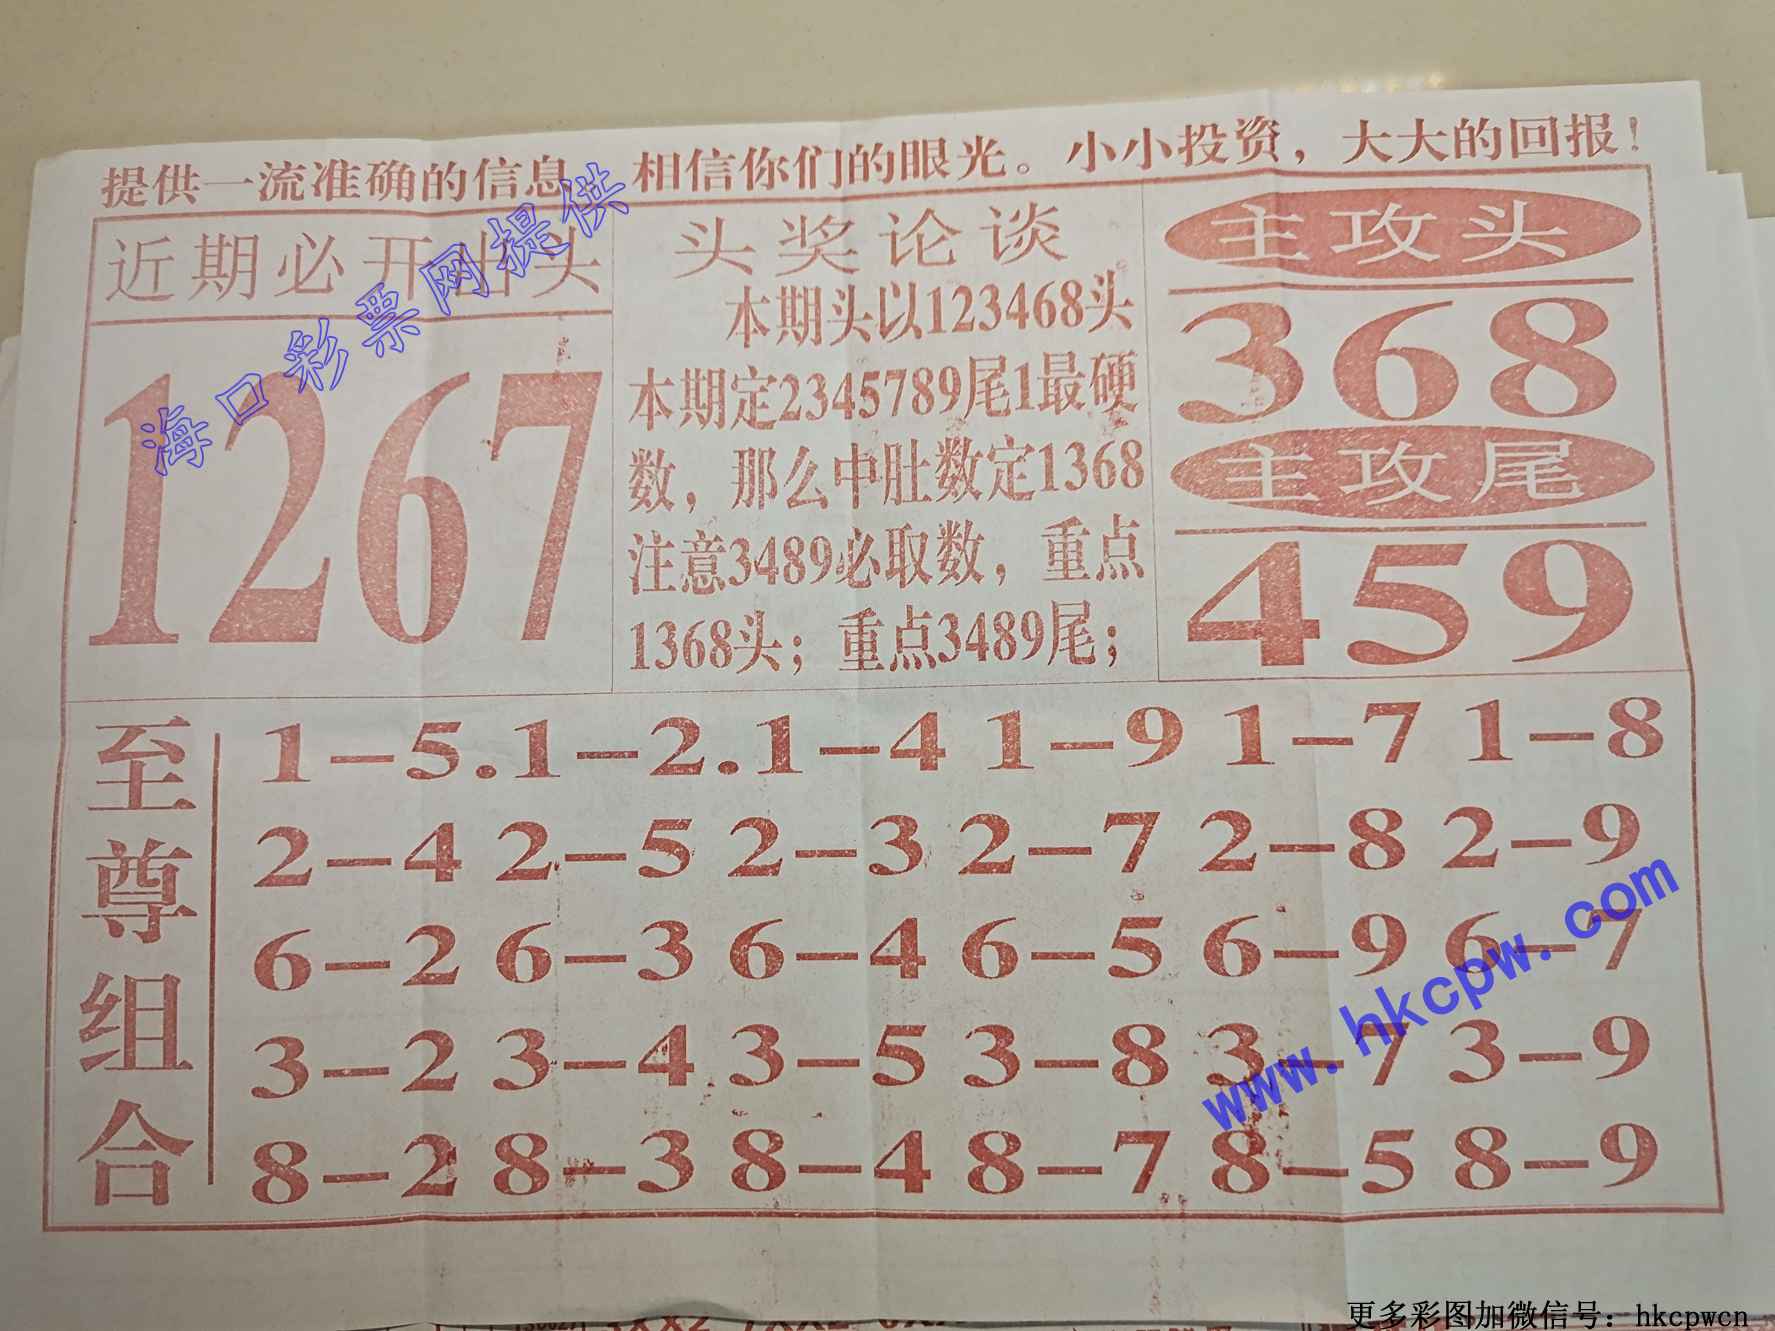 提供一流准确的信息 相信你们的眼光。小小投资，大大的回报！
近期必开出头
1267
头奖论谈
本期头以123468头
本期定2345789尾1最硬
数，那么中肚数定1368
注意3489必取数，重点
1368头；重点3489尾；
主攻头
368
主攻尾
459
至尊组合
1-5.1-2.1-4 1-9 1-7 1-8
2-4 2-5 2-3 2-7 2-8 2-9
6-2 6-3 6-4 6-5 6-9 6-7
3-2 3-4 3-5 3-8 3-7 3-9
8-2 8-3 8-4 8-7 8-5 8-9
海口彩票网提供
www.hkcpw.com
更多彩图加微信号：hkcpwcn